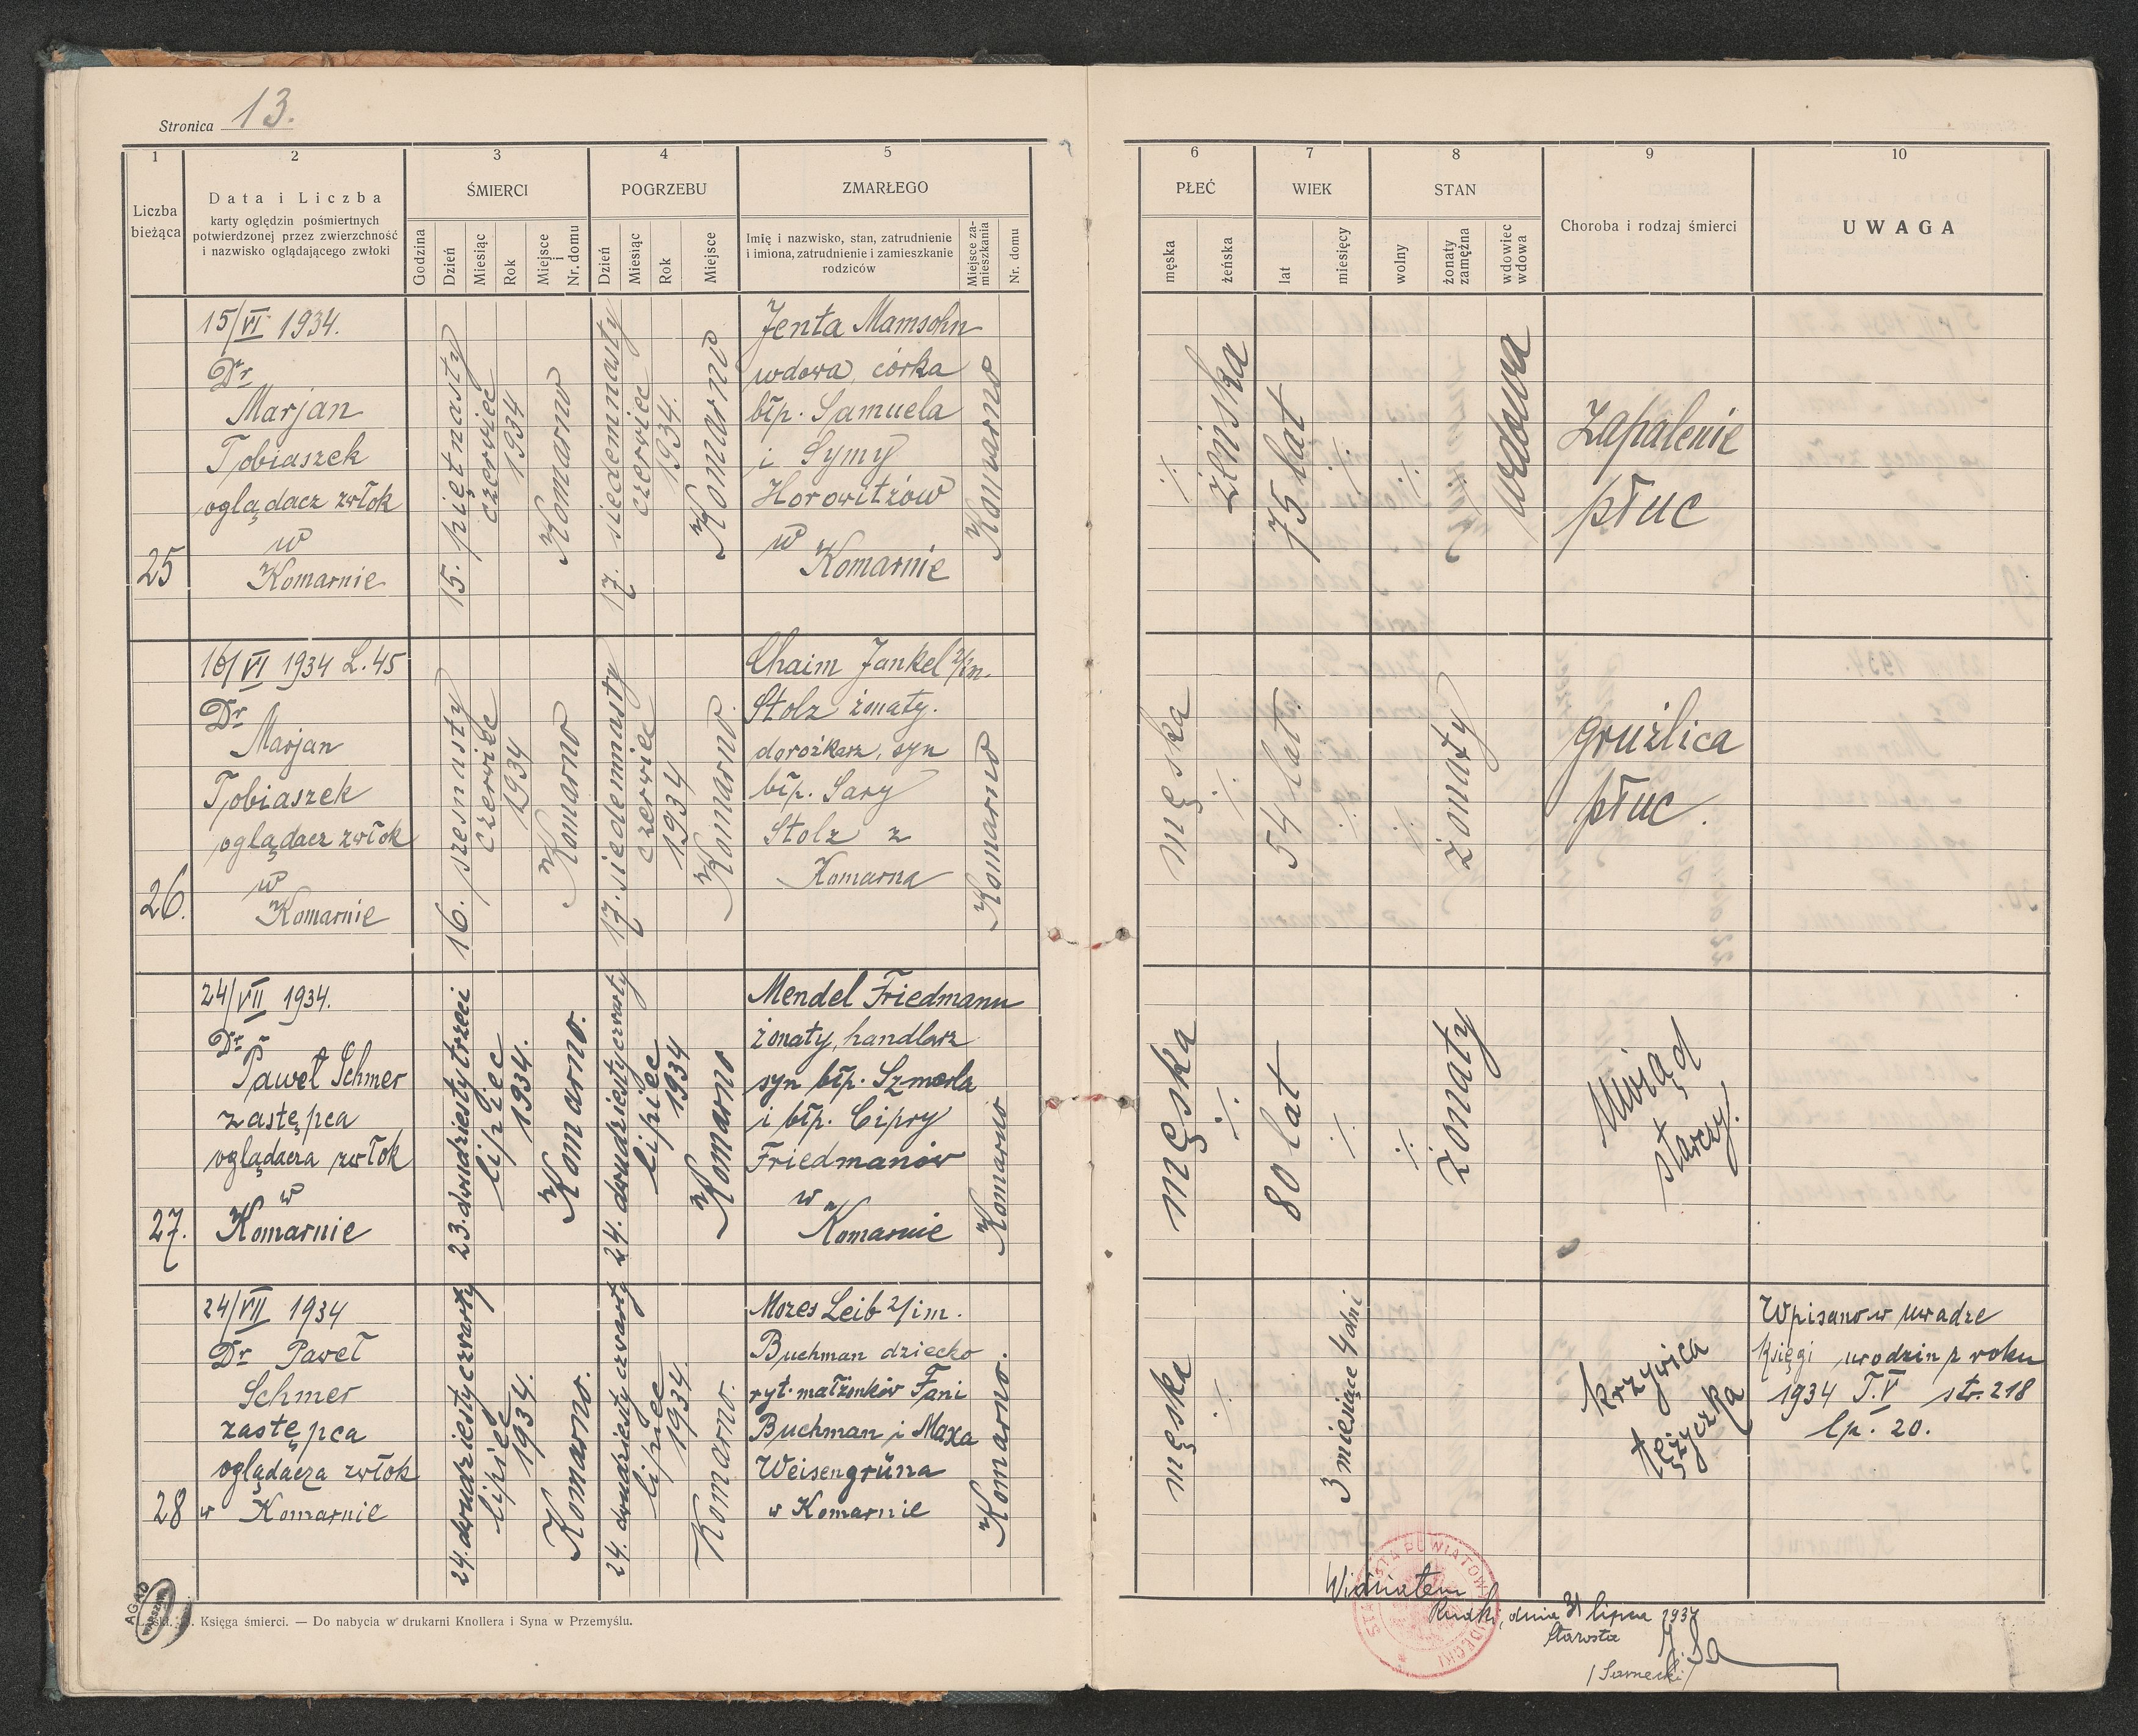 Stronica 13.
1 2 3 4 5 6 7 8 9 10
Liczba bieżąca
Data i Liczba
karty oględzin pośmiertnych
potwierdzonej przez zwierzchność
i nazwisko oglądającego zwłoki
ŚMIERCI
Godzina
Dzień
Miesiąc
Rok
Miejsce i Nr. domu
POGRZEBU
Dzień
Miesiąc
Rok
Miejsce
ZMARŁEGO
Imię i nazwisko, stan, zatrudnienie
i imiona, zatrudnienie i zamieszkanie
rodziców
Miejsce zamieszkania
Nr. domu
PŁEĆ
męska
żeńska
WIEK
lat
miesięcy
STAN
wolny
żonaty zamężna
wdowiec wdowa
Choroba i rodzaj śmierci
UWAGA
25
15/VI 1934.
Dr
Marjan
Tobiaszek
oglądacz zwłok
w
Komarnie
15. piętnasty
czerwiec
1934
Komarno
17. siedemnasty
czerwiec
1934.
Komarno
Jenta Mamsohn
wdowa, córka
błp. Samuela
i Symy
Horowitzów
w
Komarnie
Komarno
·/·
żeńska
75 lat
·/·
·/·
wdowa
Zapalenie
płuc
26.
16/VI 1934 L. 45
Dr
Marjan
Tobiaszek
oglądacz zwłok
w
Komarnie
16. szesnasty
czerwiec
1934
Komarno
17. siedemnasty
czerwiec
1934
Komarno.
Chaim Jankel 2/im.
Stolz żonaty.
dorożkarz, syn
błp. Sary
Stolz z
Komarna
Komarno
męska
·/·
54 lat.
·/·
·/·
żonaty
gruźlica
płuc.
27.
24/VII 1934.
Dr
Paweł Schmer
zastępca
oglądacza zwłok
w
Komarnie
23. dwudziestytrzeci
lipiec
1934.
Komarno.
24. dwudziestyczwarty
lipiec
1934
Komarno
Mendel Friedmann
żonaty, handlarz
syn błp. Szmerla
i błp. Cipry
Friedmanów
w
Komarnie
Komarno
męska
·/·
80 lat
·/·
·/·
żonaty
Uwiąd
starczy.
28
24/VII 1934
Dr Paweł
Schmer
zastępca
oglądacza zwłok
w Komarnie
24. dwudziestyczwarty
lipiec
1934.
Komarno.
24. dwudziestyczwarty
lipiec
1934.
Komarno.
Mozes Leib 2/im.
Buchman dziecko
ryt. małżonków Fani
Buchman i Maxa
Weisengrüna
w Komarnie
Komarno.
męska
·/·
3 miesiące 4 dni
krzywica
tężyczka
Wpisano w uwadze
księgi urodzin z roku
1934 T.V str. 218
lp. 20.
Księga śmierci. — Do nabycia w drukarni Knollera i Syna w Przemyślu.
AGAD
WARSZAWA
Widziałem
Rudki, dnia 31 lipca 1937
Starosta
/Sarnecki/